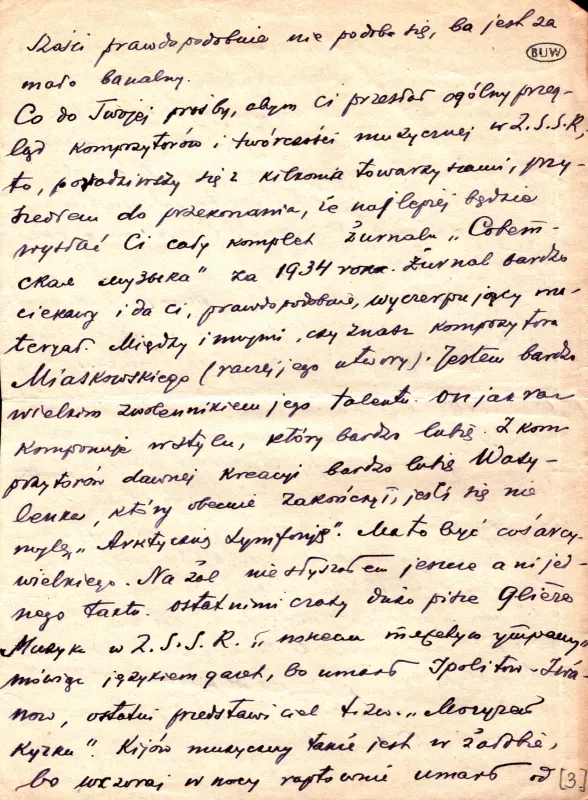 Szaści prawdopodobnie nie podoba się, ba jest za
BUW
mało banalny.
Co do Twojej prośby, abym Ci przesłał ogólny przeg-
ląd kompozytorów i twórczości muzycznej w Z.S.S.R,
to, poradziwszy się z kilkoma towarzyszami, przy-
szedłem do przekonania, że najlepiej będzie
wysłać Ci cały komplet żurnalu „Совет-
ская музыка" za 1934 roku. Żurnal bardzo
ciekawy i da ci, prawdopodobnie, wyczerpujący ma-
terjał. Między innymi, czy znasz kompozytora
Miaskowskiego (raczej jego utwory). Jestem bardzo
wielkim zwolennikiem jego talentu. On jak raz
komponuje w stylu, który bardzo lubię. Z kom
pozytorów dawnej kreacji bardzo lubię Wasy-
lenka, który obecnie zakończył, jeśli się nie
mylę, „Arktyczną Symfonję". Ma to być coś arcy-
wielkiego. Na żal nie słyszałem jeszcze ani jed-
nego taktu. Ostatnimi czasy dużo pisze Glière
Muzyka w Z.S.S.R. „ утрату"
mówiąc językiem gazet, bo umarł Ipolitow-Iwa-
now, ostatni przedstawiciel t.zw. „Могучей
Кучки". Kijów muzyczny także jest w żałobie,
bo wczoraj w nocy raptownie umarł od [3]